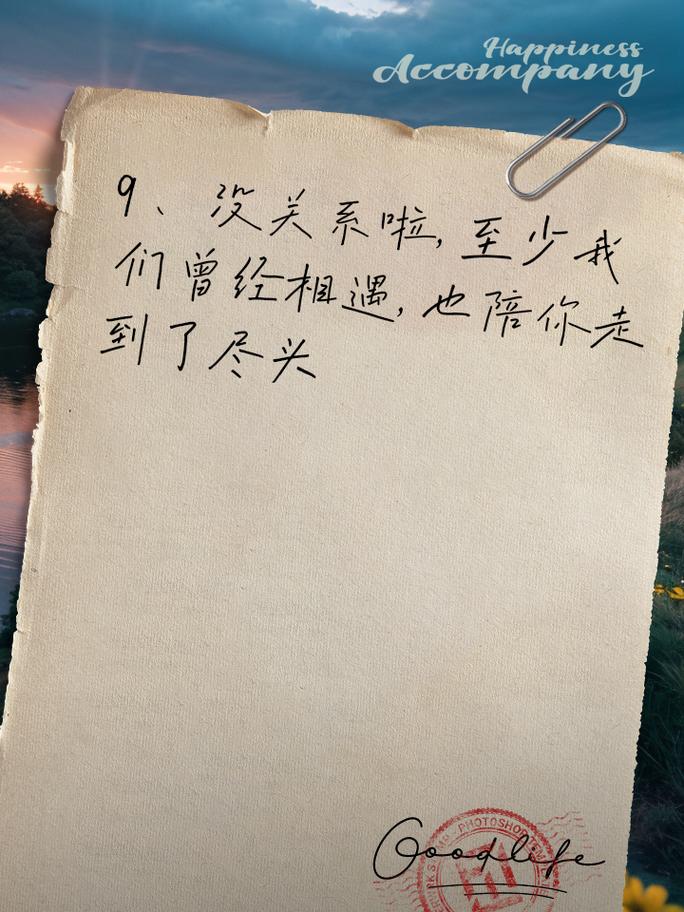 Happiness
Accompany
9、没关系啦,至少我
们曾经相遇,也陪你走
到了尽头
PHOTOSHOP
Goodlife